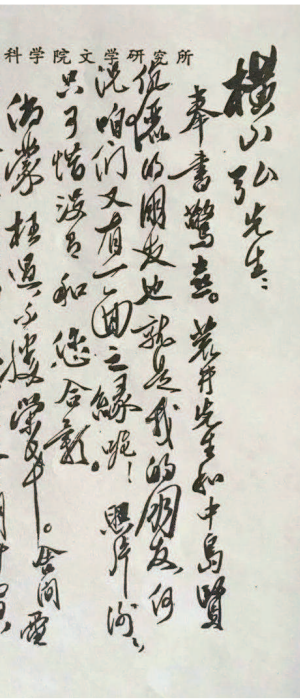 科学院文学研究所
横山弘先生：
奉書驚喜。荒井先生和中島賢
伉儷的朋友也就是我的朋友，何
况咱们又有一面之緣呢！照片谢谢，
只可惜没有和您合影。
倘蒙枉過，不勝榮幸。舍间電